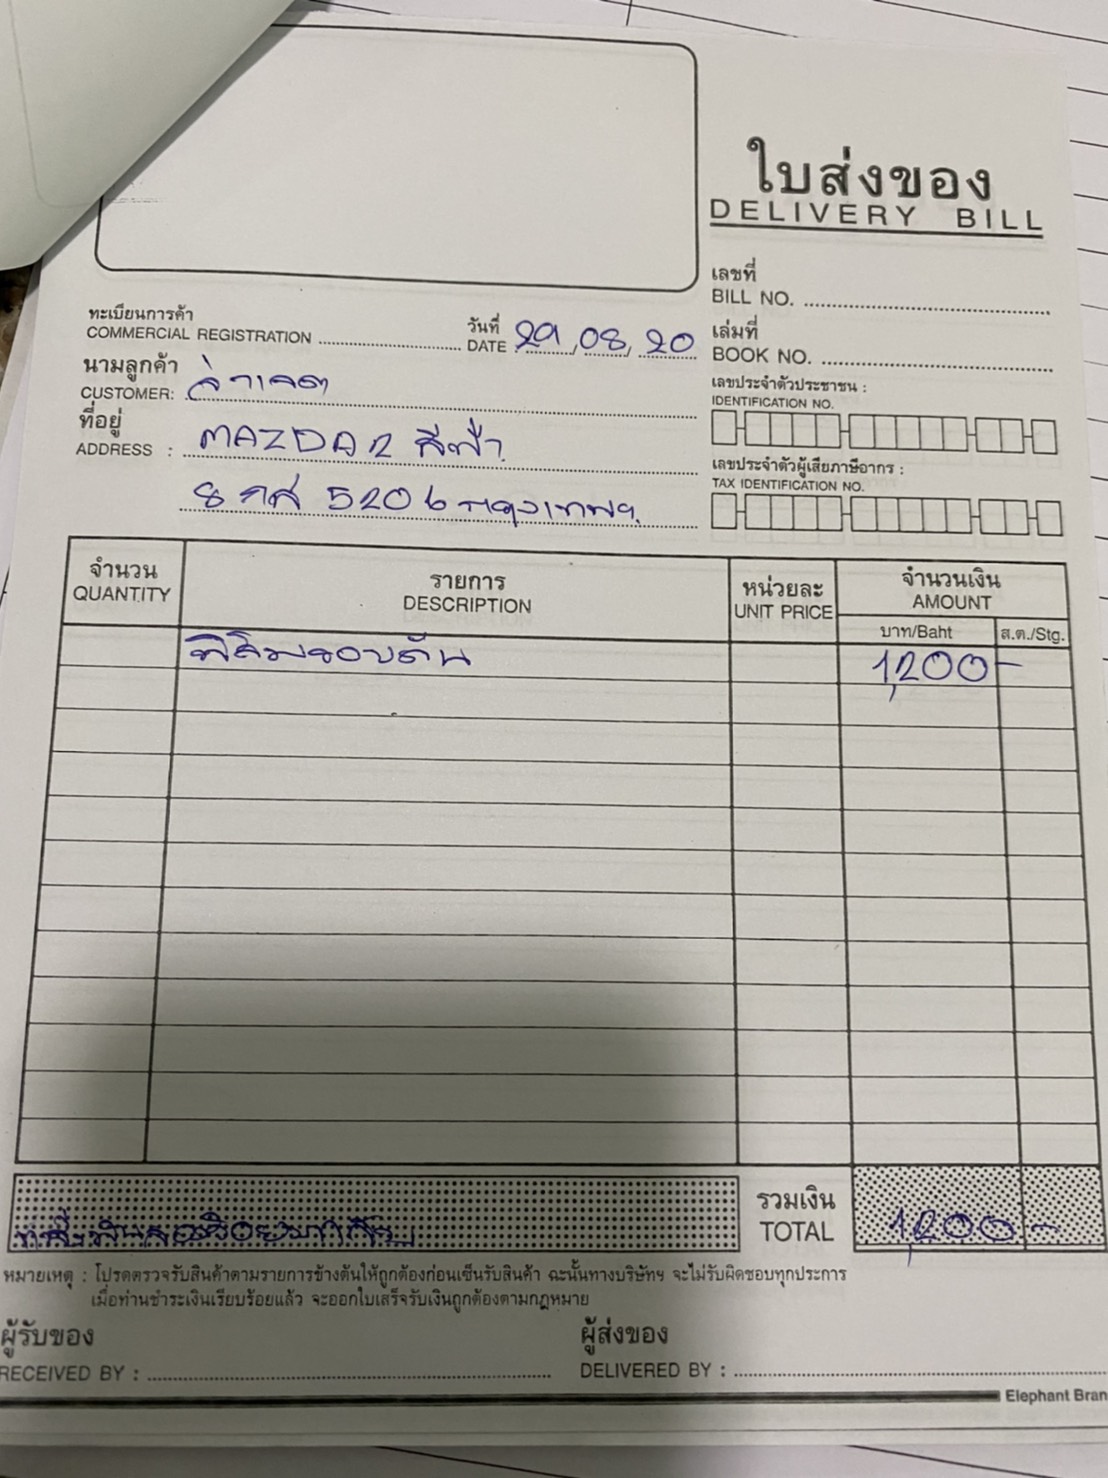 ใบส่งของ
DELIVERY BILL
เลขที่
BILL NO.
ทะเบียนการค้า
COMMERCIAL REGISTRATION
วันที่
DATE 29, 08, 20
เล่มที่
BOOK NO.
นามลูกค้า
CUSTOMER:
เลขประจำตัวประชาชน :
IDENTIFICATION NO.
ที่อยู่
ADDRESS : MAZDA 2 สีฟ้า
เลขประจำตัวผู้เสียภาษีอากร :
TAX IDENTIFICATION NO.
8 กศ 5206 กรุงเทพฯ
จำนวน
QUANTITY
รายการ
DESCRIPTION
หน่วยละ
UNIT PRICE
จำนวนเงิน
AMOUNT
บาท/Baht
ส.ต./Stg.
ฟิล์มรอบคัน 1,200 -
รวมเงิน
TOTAL
1,200 -
หมายเหตุ : โปรดตรวจรับสินค้าตามรายการข้างต้นให้ถูกต้องก่อนเซ็นรับสินค้า ฉะนั้นทางบริษัทฯ จะไม่รับผิดชอบทุกประการ
เมื่อท่านชำระเงินเรียบร้อยแล้ว จะออกใบเสร็จรับเงินถูกต้องตามกฎหมาย
ผู้รับของ
RECEIVED BY :
ผู้ส่งของ
DELIVERED BY :
Elephant Bran